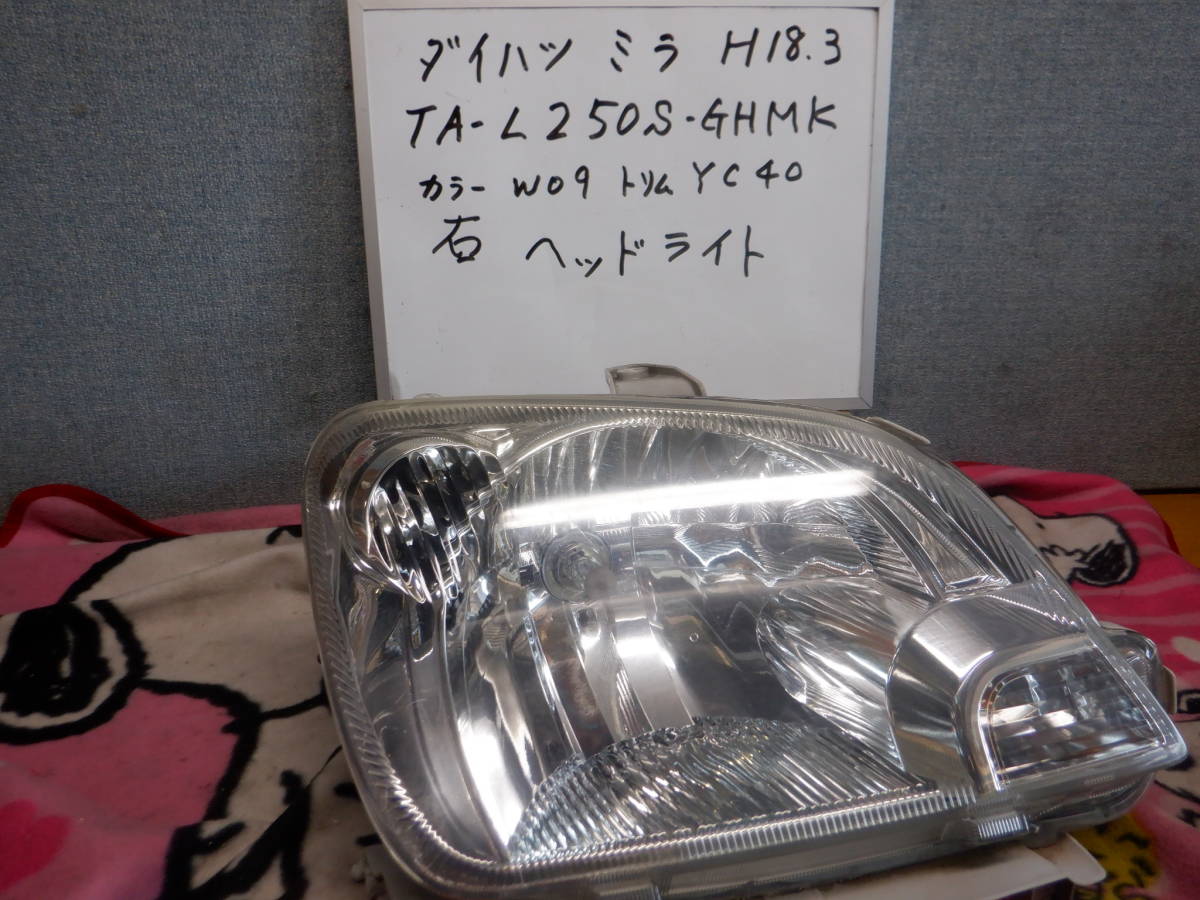 ダイハツ ミラ H18.3
TA-L250S-GHMK
カラー W09 トリム YC40
右 ヘッドライト